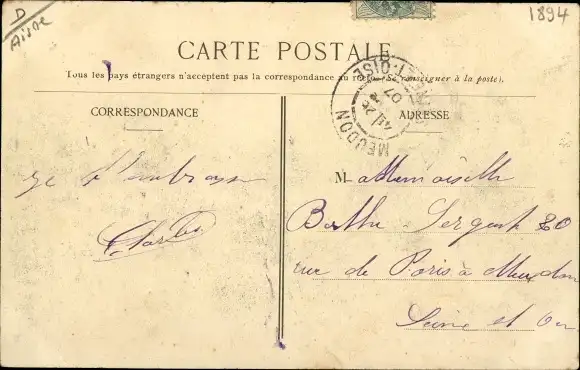 D
Aisne
1894
CARTE POSTALE
Tous les pays étrangers n'acceptent pas la correspondance au recto. (Se renseigner à la poste).
CORRESPONDANCE
ADRESSE
MEUDON
ET-OISE
26
07
je t'embrasse
M ademoiselle
Berthe Sergent 80
rue de Paris à Meudon
Seine et Oise